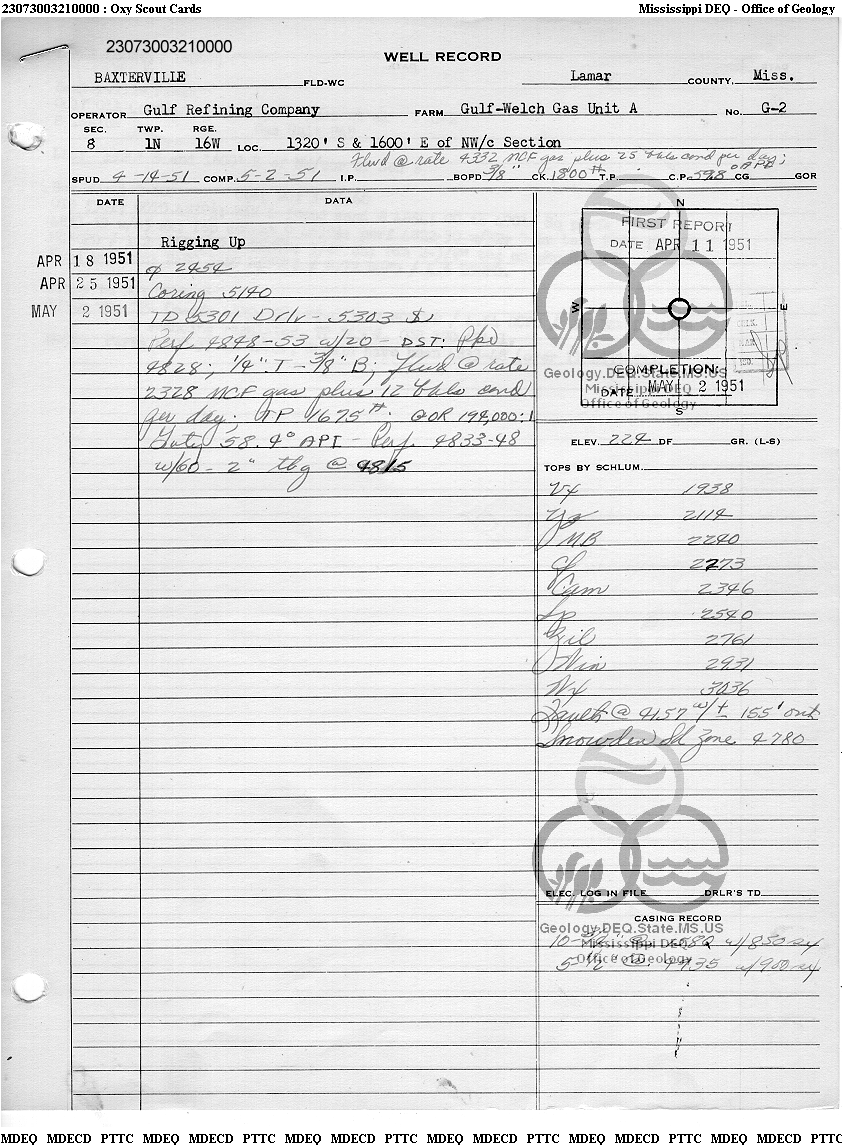 23073003210000 : Oxy Scout Cards Mississippi DEQ - Office of Geology
23073003210000
WELL RECORD
BAXTERVILLE FLD-WC Lamar COUNTY, Miss.
OPERATOR Gulf Refining Company FARM Gulf-Welch Gas Unit A NO. G-2
SEC. TWP. RGE.
8 1N 16W LOC. 1320' S & 1600' E of NW/c Section
Flwd @ rate 4332 MCF gas plus 25 bbls cond per day;
SPUD 4-14-51 COMP. 5-2-51 I.P. BOPD 3/8" CK. 1800# T.P. C.P. 59.8 °API CG GOR
DATE DATA
Rigging Up
APR 18 1951 2454
APR 25 1951 Coring 5140
MAY 2 1951 TD 5301 Drlr - 5303 S
Perf 4848-53 w/20 - DST: Pkr
4828; 1/4" T - 3/8" B; Flwd @ rate
2328 MCF gas plus 12 bbls cond
per day; TP 1675#. GOR 194,000:1
Gvty 58.4° API - Perf 4833-48
w/60 - 2" tbg @ 4815
N
FIRST REPORT
DATE APR 11 1951
W E
COMPLETION:
DATE MAY 2 1951
S
Geology.DEQ.State.MS.US
Mississippi DEQ
Office of Geology
ELEV. 224 DF GR. (L-S)
TOPS BY SCHLUM.
Vx 1938
Yz 2114
MB 2240
gl 2273
Cam 2346
Lp 2540
Zil 2761
Win 2931
Wx 3036
Fault @ 4157 w/± 155' out
Snowden Sd Zone 4780
ELEC. LOG IN FILE DRLR'S TD
CASING RECORD
Geology.DEQ.State.MS.US
10-3/4" @ 582 w/850 sx
Mississippi DEQ
5-1/2" @ 4935 w/900 sx
Office of Geology
MDEQ MDECD PTTC MDEQ MDECD PTTC MDEQ MDECD PTTC MDEQ MDECD PTTC MDEQ MDECD PTTC MDEQ MDECD PTTC